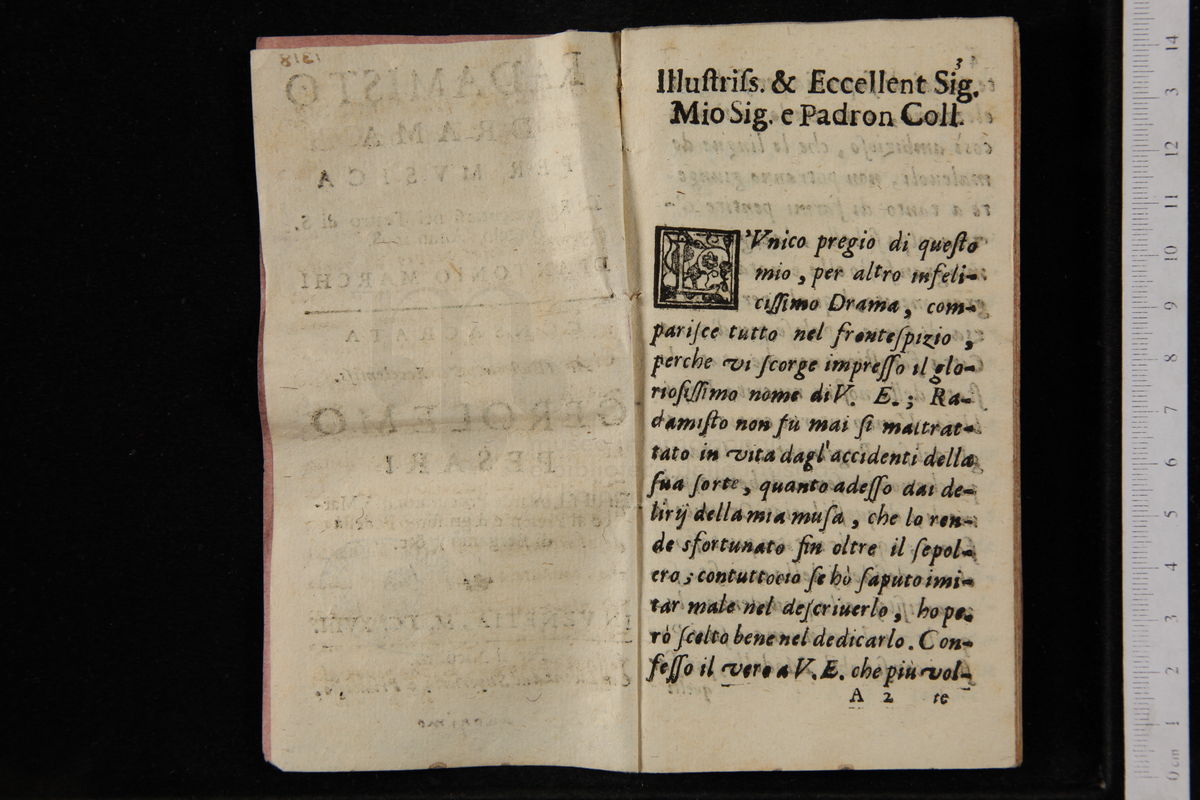 3
Illustriſs. & Eccellent Sig.
Mio Sig. e Padron Coll.
L'Vnico pregio di queſto
mio, per altro infeli-
ciſſimo Drama, com-
pariſce tutto nel fronteſpizio,
perche vi ſcorge impreſſo il glo-
rioſiſſimo nome di V. E.; Ra-
damiſto non fù mai ſi maltrat-
tato in vita dagl'accidenti della
ſua ſorte, quanto adeſſo dai de-
lirij della mia muſa, che lo ren-
de sfortunato fin oltre il ſepol-
cro; contuttociò ſe hò ſaputo imi-
tar male nel deſcriuerlo, ho pe-
rò ſcelto bene nel dedicarlo. Con-
feſſo il vero a V. E. che più vol-
A 2 te
1318
RADAMISTO
DRAMA
PER MVSICA
DI ANTONIO MARCHI
CONSACRATA
GEROLEMO
PESARI
14
3
12
11
10
9
8
7
6
5
4
3
2
1
0 cm